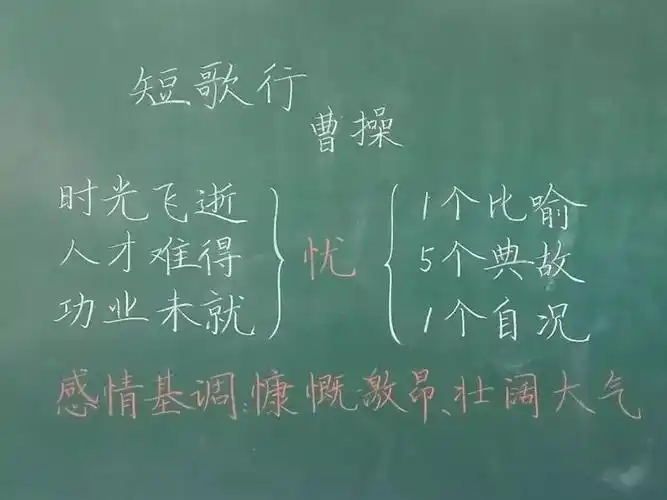 短歌行
曹操
时光飞逝
人才难得
功业未就
忧
1个比喻
5个典故
1个自况
感情基调:慷慨激昂、壮阔大气